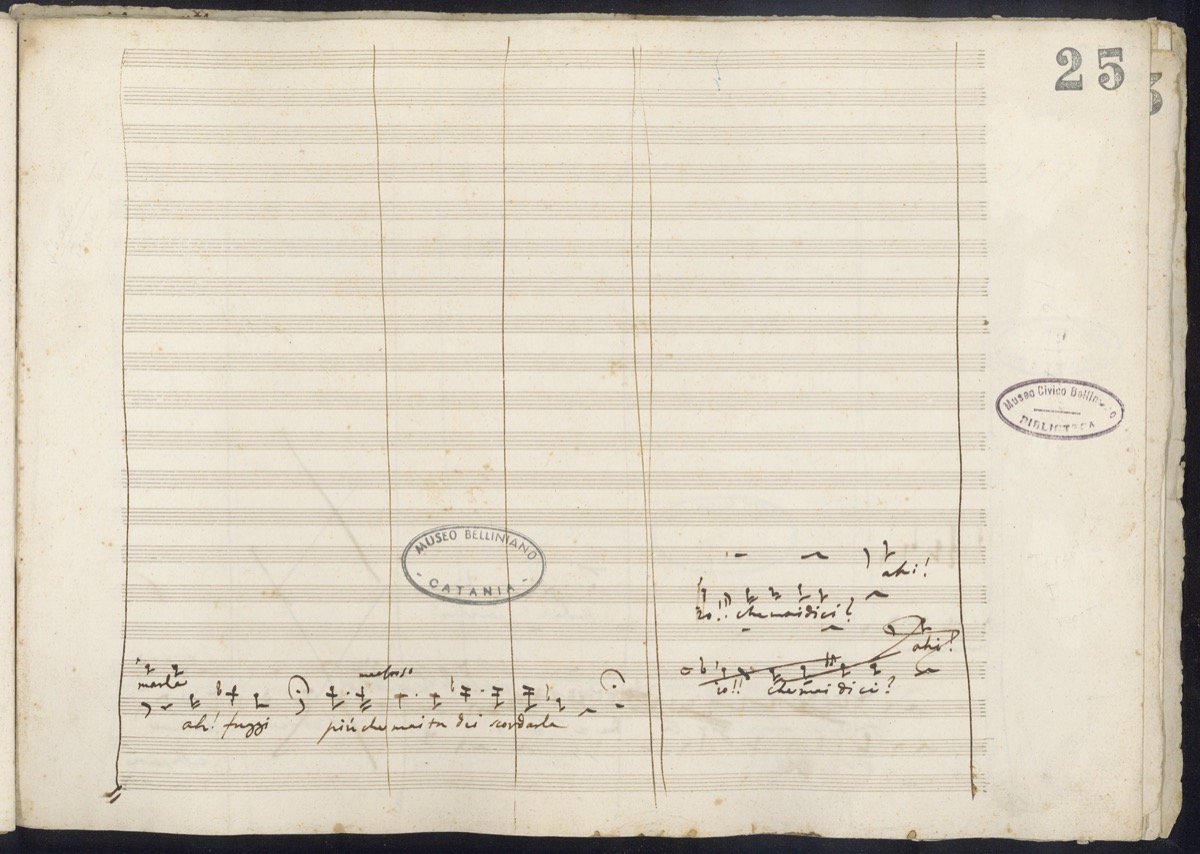 25
Museo Civico Belliniano
BIBLIOTECA
MUSEO BELLINIANO
- CATANIA -
ahi!
io!! che mai dici?
ahi!
io!! che mai dici?
marla
ah! fuggi più che mai tu dei scordarla